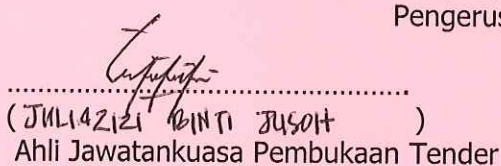 Pengerus
........................................................
(JULIAZIZI BINTI JUSOH )
Ahli Jawatankuasa Pembukaan Tender